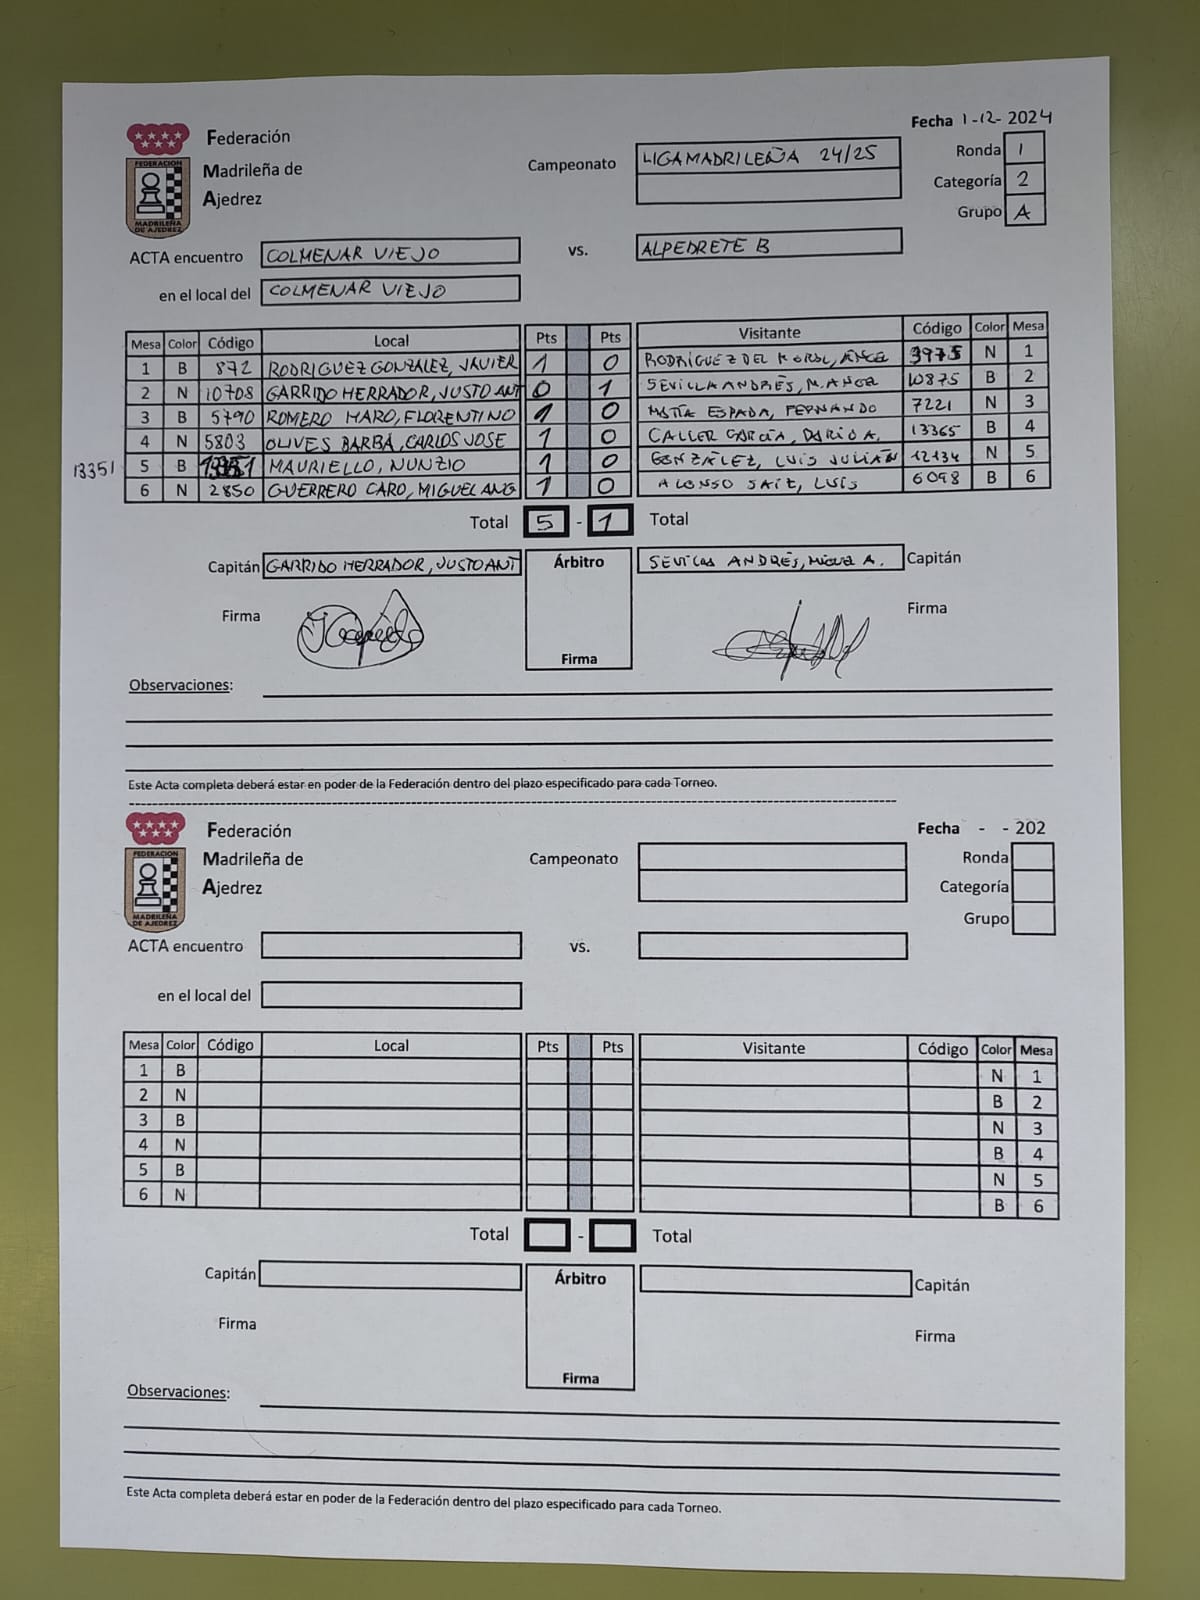 Fecha 1-12-2024
Federación
Madrileña de
Ajedrez
FEDERACION
MADRILEÑA
DE AJEDREZ
Campeonato LIGA MADRILEÑA 24/25
Ronda 1
Categoría 2
Grupo A
ACTA encuentro COLMENAR VIEJO vs. ALPEDRETE B
en el local del COLMENAR VIEJO
Mesa Color Código Local Pts Pts Visitante Código Color Mesa
1 B 872 RODRIGUEZ GONZALEZ, JAVIER 1 0 RODRÍGUEZ DEL 3975 N 1
2 N 10708 GARRIDO HERRADOR, JUSTO ANT 0 1 SEVILLA ANDRÉS, M. ANGE 10875 B 2
3 B 5790 ROMERO MARO, FLORENTINO 1 0 ESPADA, FERNANDO 7221 N 3
4 N 5803 OLIVES BARBA, CARLOS JOSE 1 0 CALLER GARCÍA, DARIO A. 13365 B 4
13351 5 B MAURIELLO, NUNZIO 1 0 GONZÁLEZ, LUIS JULIÁN 12134 N 5
6 N 2850 GUERRERO CARO, MIGUEL ANG 1 0 ALONSO SAIZ, LUIS 6098 B 6
Total 5 - 1 Total
Capitán GARRIDO HERRADOR, JUSTO ANT Árbitro ANDRÉS, MIGUEL A. Capitán
Firma Firma
Firma
Observaciones:
Este Acta completa deberá estar en poder de la Federación dentro del plazo especificado para cada Torneo.
Fecha - - 202
Federación
Madrileña de
Ajedrez
FEDERACION
MADRILEÑA
DE AJEDREZ
Campeonato
Ronda
Categoría
Grupo
ACTA encuentro vs.
en el local del
Mesa Color Código Local Pts Pts Visitante Código Color Mesa
1 B N 1
2 N B 2
3 B N 3
4 N B 4
5 B N 5
6 N B 6
Total - Total
Capitán Árbitro Capitán
Firma Firma
Firma
Observaciones:
Este Acta completa deberá estar en poder de la Federación dentro del plazo especificado para cada Torneo.